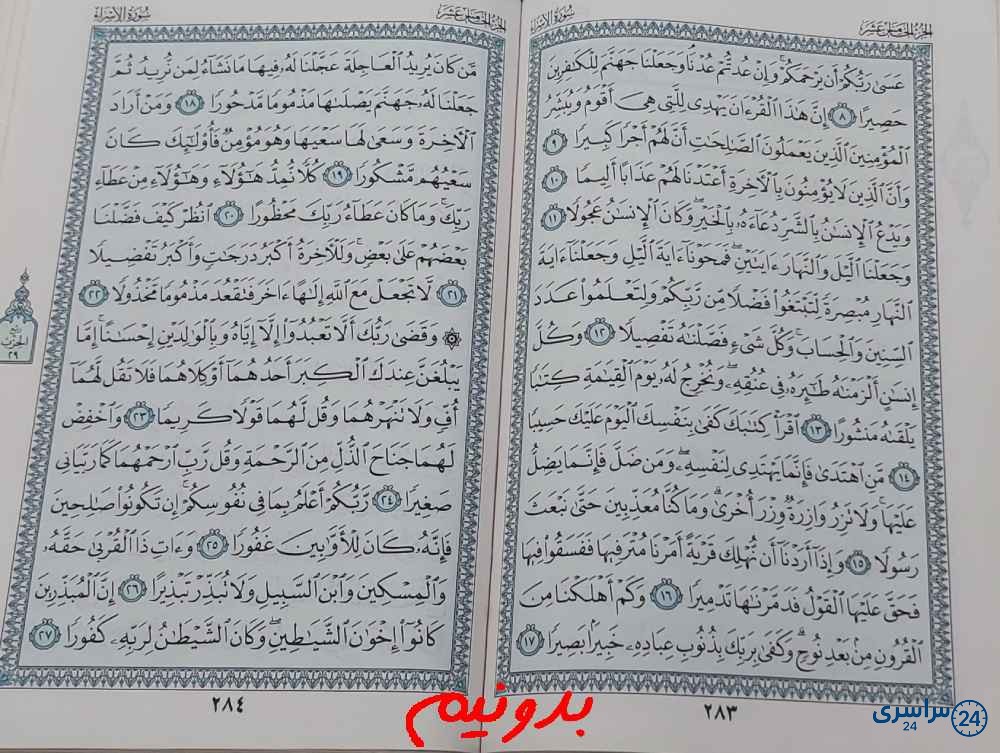 الجزء الخامس عشر
سورة الإسراء
عَسَىٰ رَبُّكُمْ أَن يَرْحَمَكُمْ ۚ وَإِنْ عُدتُّمْ عُدْنَا ۘ وَجَعَلْنَا جَهَنَّمَ لِلْكَٰفِرِينَ
حَصِيرًا ٨ إِنَّ هَٰذَا ٱلْقُرْءَانَ يَهْدِى لِلَّتِى هِىَ أَقْوَمُ وَيُبَشِّرُ
ٱلْمُؤْمِنِينَ ٱلَّذِينَ يَعْمَلُونَ ٱلصَّٰلِحَٰتِ أَنَّ لَهُمْ أَجْرًا كَبِيرًا ٩
وَأَنَّ ٱلَّذِينَ لَا يُؤْمِنُونَ بِٱلْءَاخِرَةِ أَعْتَدْنَا لَهُمْ عَذَابًا أَلِيمًا ١٠
وَيَدْعُ ٱلْإِنسَٰنُ بِٱلشَّرِّ دُعَآءَهُۥ بِٱلْخَيْرِ ۖ وَكَانَ ٱلْإِنسَٰنُ عَجُولًا ١١
وَجَعَلْنَا ٱلَّيْلَ وَٱلنَّهَارَ ءَايَتَيْنِ ۖ فَمَحَوْنَآ ءَايَةَ ٱلَّيْلِ وَجَعَلْنَآ ءَايَةَ
ٱلنَّهَارِ مُبْصِرَةً لِّتَبْتَغُوا۟ فَضْلًا مِّن رَّبِّكُمْ وَلِتَعْلَمُوا۟ عَدَدَ
ٱلسِّنِينَ وَٱلْحِسَابَ ۚ وَكُلَّ شَىْءٍ فَصَّلْنَٰهُ تَفْصِيلًا ١٢ وَكُلَّ
إِنسَٰنٍ أَلْزَمْنَٰهُ طَٰٓئِرَهُۥ فِى عُنُقِهِۦ ۖ وَنُخْرِجُ لَهُۥ يَوْمَ ٱلْقِيَٰمَةِ كِتَٰبًا
يَلْقَىٰهُ مَنشُورًا ١٣ ٱقْرَأْ كِتَٰبَكَ كَفَىٰ بِنَفْسِكَ ٱلْيَوْمَ عَلَيْكَ حَسِيبًا
١٤ مَّنِ ٱهْتَدَىٰ فَإِنَّمَا يَهْتَدِى لِنَفْسِهِۦ ۖ وَمَن ضَلَّ فَإِنَّمَا يَضِلُّ
عَلَيْهَا ۚ وَلَا تَزِرُ وَازِرَةٌ وِزْرَ أُخْرَىٰ ۗ وَمَا كُنَّا مُعَذِّبِينَ حَتَّىٰ نَبْعَثَ
رَسُولًا ١٥ وَإِذَآ أَرَدْنَآ أَن نُّهْلِكَ قَرْيَةً أَمَرْنَا مُتْرَفِيهَا فَفَسَقُوا۟ فِيهَا
فَحَقَّ عَلَيْهَا ٱلْقَوْلُ فَدَمَّرْنَٰهَا تَدْمِيرًا ١٦ وَكَمْ أَهْلَكْنَا مِنَ
ٱلْقُرُونِ مِنۢ بَعْدِ نُوحٍ ۗ وَكَفَىٰ بِرَبِّكَ بِذُنُوبِ عِبَادِهِۦ خَبِيرًۢا بَصِيرًا ١٧
٢٨٣
الجزء الخامس عشر
سورة الإسراء
مَّن كَانَ يُرِيدُ ٱلْعَاجِلَةَ عَجَّلْنَا لَهُۥ فِيهَا مَا نَشَآءُ لِمَن نُّرِيدُ ثُمَّ
جَعَلْنَا لَهُۥ جَهَنَّمَ يَصْلَىٰهَا مَذْمُومًا مَّدْحُورًا ١٨ وَمَنْ أَرَادَ
ٱلْءَاخِرَةَ وَسَعَىٰ لَهَا سَعْيَهَا وَهُوَ مُؤْمِنٌ فَأُو۟لَٰٓئِكَ كَانَ
سَعْيُهُم مَّشْكُورًا ١٩ كُلًّا نُّمِدُّ هَٰٓؤُلَآءِ وَهَٰٓؤُلَآءِ مِنْ عَطَآءِ
رَبِّكَ ۚ وَمَا كَانَ عَطَآءُ رَبِّكَ مَحْظُورًا ٢٠ ٱنظُرْ كَيْفَ فَضَّلْنَا
بَعْضَهُمْ عَلَىٰ بَعْضٍ ۚ وَلَلْءَاخِرَةُ أَكْبَرُ دَرَجَٰتٍ وَأَكْبَرُ تَفْضِيلًا
٢١ لَّا تَجْعَلْ مَعَ ٱللَّهِ إِلَٰهًا ءَاخَرَ فَتَقْعُدَ مَذْمُومًا مَّخْذُولًا ٢٢
۞ وَقَضَىٰ رَبُّكَ أَلَّا تَعْبُدُوٓا۟ إِلَّآ إِيَّاهُ وَبِٱلْوَٰلِدَيْنِ إِحْسَٰنًا ۚ إِمَّا
يَبْلُغَنَّ عِندَكَ ٱلْكِبَرَ أَحَدُهُمَآ أَوْ كِلَاهُمَا فَلَا تَقُل لَّهُمَآ
أُفٍّ وَلَا تَنْهَرْهُمَا وَقُل لَّهُمَا قَوْلًا كَرِيمًا ٢٣ وَٱخْفِضْ
لَهُمَا جَنَاحَ ٱلذُّلِّ مِنَ ٱلرَّحْمَةِ وَقُل رَّبِّ ٱرْحَمْهُمَا كَمَا رَبَّيَانِى
صَغِيرًا ٢٤ رَّبُّكُمْ أَعْلَمُ بِمَا فِى نُفُوسِكُمْ ۚ إِن تَكُونُوا۟ صَٰلِحِينَ
فَإِنَّهُۥ كَانَ لِلْأَوَّٰبِينَ غَفُورًا ٢٥ وَءَاتِ ذَا ٱلْقُرْبَىٰ حَقَّهُۥ
وَٱلْمِسْكِينَ وَٱبْنَ ٱلسَّبِيلِ وَلَا تُبَذِّرْ تَبْذِيرًا ٢٦ إِنَّ ٱلْمُبَذِّرِينَ
كَانُوٓا۟ إِخْوَٰنَ ٱلشَّيَٰطِينِ ۖ وَكَانَ ٱلشَّيْطَٰنُ لِرَبِّهِۦ كَفُورًا ٢٧
ربع
الحزب
٢٩
٢٨٤
بدونیم
سراسری
24
24